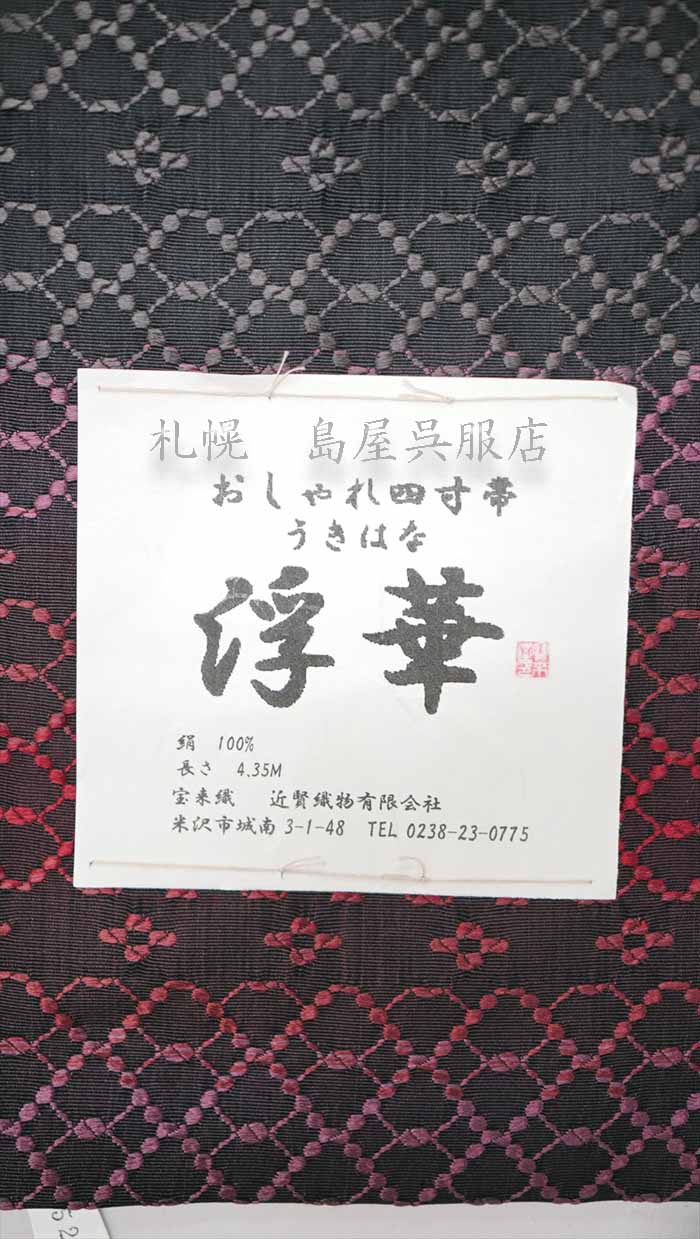 札幌　島屋呉服店
おしゃれ四寸帯
うきはな
浮華
絹 100%
長さ 4.35M
宝来織 近賢織物有限会社
米沢市城南 3-1-48 TEL 0238-23-0775
52